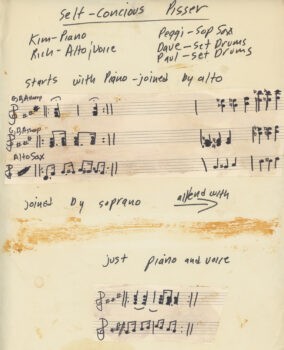 Self-Concious Pisser
Kim-Piano
Rich-Alto/Voice
Peggi-Sop Sax
Dave-Set Drums
Paul-Set Drums
starts with Piano-joined by alto
Alto Sax
joined by soprano
all end with
just piano and voice